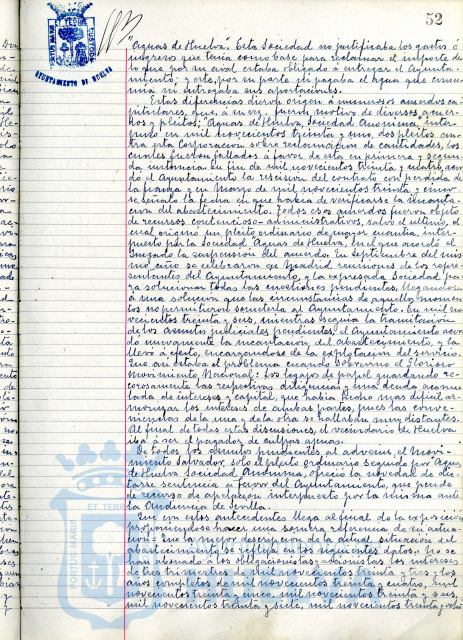 52
AYUNTAMIENTO DE HUELVA
"Aguas de Huelva". Esta Sociedad no justificaba los gastos é
ingresos que tenía como base para reclamar el importe de
lo que por su aval estaba obligado á entregar el Ayunta-
miento; y este, por su parte ni pagaba el agua que consu-
mía ni entregaba sus aportaciones.
Estas diferencias dieron origen á numerosos acuerdos ca-
pitulares, que á su vez, fueron motivo de diversos acuer-
dos y pleitos; Aguas de Huelva, Sociedad Anonima, inter-
puso en mil novecientos treinta y uno, dos pleitos con-
tra esta Corporacion sobre reclamacion de cantidades, los
cuales fueron fallados á favor de esta en primera y segun-
da instancia. En fin de mil novecientos treinta y cuatro, acor-
dó el Ayuntamiento la rescision del contrato con perdida de
la fianza y en Marzo de mil novecientos treinta y cinco
se señaló la fecha en que habia de verificarse la incauta-
cion del abastecimiento. Todos esos acuerdos fueron objeto
de recursos contencioso-administrativos, salvo el ultimo, el
cual originó un pleito ordinario de mayor cuantia, inter-
puesto por la Sociedad Aguas de Huelva, en el que acordó el
Juzgado la suspension del acuerdo. En septiembre del mis-
mo año se celebraron en Madrid reuniones de los repre-
sentantes del Ayuntamiento, y la expresada Sociedad pa-
ra solucionar todas las cuestiones pendientes, llegandose
á una solucion que las circunstancias de aquellos momen-
tos no permitieron someterla al Ayuntamiento. En mil no-
vecientos treinta y seis, mientras seguia la tramitacion
de los asuntos judiciales pendientes, el Ayuntamiento acor-
dó nuevamente la incautacion del abastecimiento, y la
llevó á efecto, encargandose de la explotacion del servicio.
Que asi estaba el problema cuando sobrevino el Glorioso
Movimiento Nacional: Los legajos de papel guardando ce-
corosamente las respectivas diligencias y una deuda acumu-
lada de intereses y capital, que habia hecho mas dificil ar-
monizar los intereses de ambas partes, pues las conve-
niencias de la una y de la otra se hallaban muy distantes.
Al final de todas estas discusiones, el vecindario de Huelva
iba á ser el pagador de culpas ajenas.
De todos los asuntos pendientes al advenir el Movi-
miento Salvador, solo el pleito ordinario seguido por Aguas
de Huelva Sociedad Anonima, ofreció la novedad de dic-
tarse sentencia á favor del Ayuntamiento, que pende
de recurso de apelacion interpuesto por la misma ante
la Audiencia de Sevilla.
Que con estos antecedentes llega al final de la exposicion
proponiendose hacer una somera referencia de su actua-
cion: Que la mejor descripcion de la actual situacion del
abastecimiento se refleja en los siguientes datos: No se
han abonado á los obligacionistas y accionistas los intereses
de tres trimestres de mil novecientos treinta y tres y los
años completos de mil novecientos treinta y cuatro, mil
novecientos treinta y cinco, mil novecientos treinta y seis,
mil novecientos treinta y siete, mil novecientos treinta y ocho